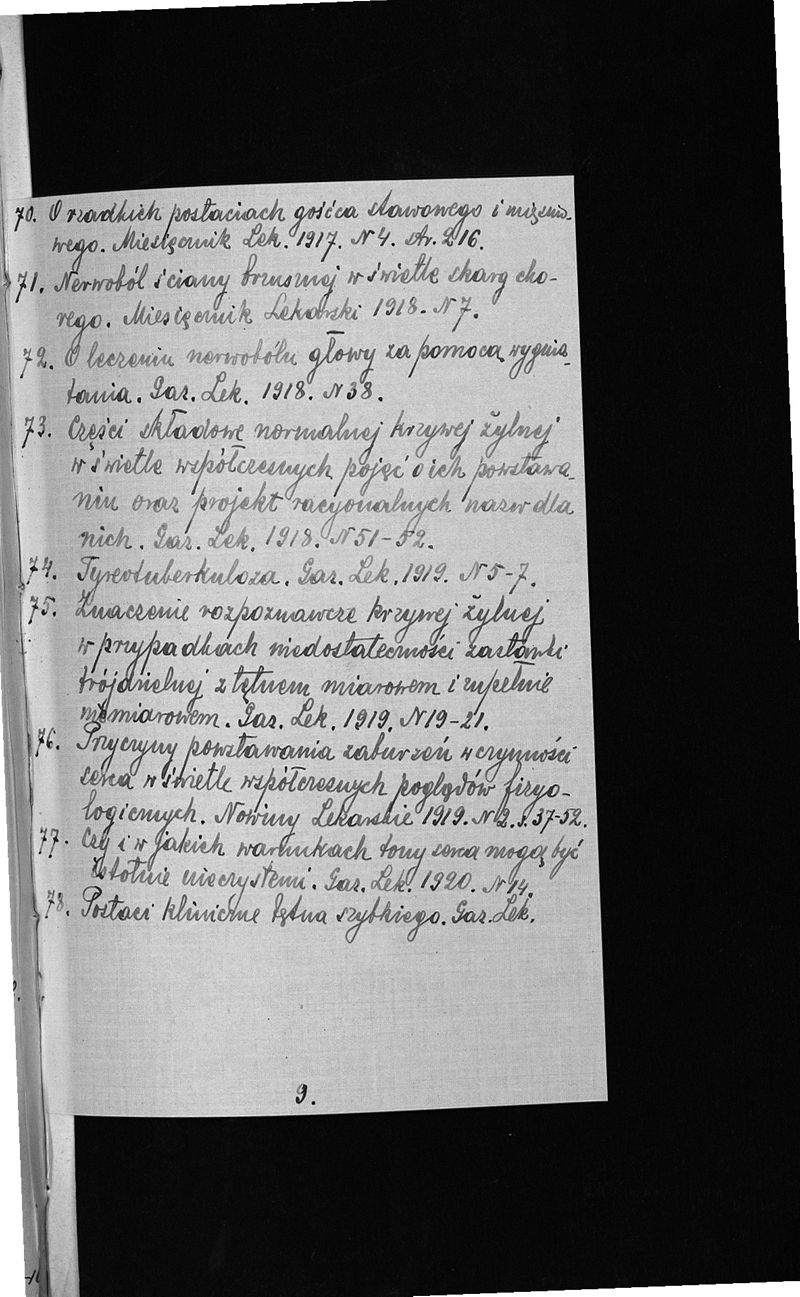 70. O rzadkich postaciach gośćca stawowego i mięśnio-
wego. Miesięcznik Lek. 1917. N 4. str. 216.
71. Nerwoból ściany brzusznej w świetle skarg cho-
rego. Miesięcznik Lekarski 1918. N 7.
72. O leczeniu nerwobólu głowy za pomocą wygnia-
tania. Gaz. Lek. 1918. N 38.
73. Części składowe normalnej krzywej żylnej
w świetle współczesnych pojęć o ich powstawa-
niu oraz projekt racyonalnych nazw dla
nich. Gaz. Lek. 1918. N 51-52.
74. Tyreotuberkuloza. Gaz. Lek. 1919. N 5-7.
75. Znaczenie rozpoznawcze krzywej żylnej
w przypadkach niedostateczności zastawki
trójdzielnej z tętnem miarowem i zupełnie
niemiarowem. Gaz. Lek. 1919. N 19-21.
76. Przyczyny powstawania zaburzeń w czynności
serca w świetle współczesnych poglądów fizyo-
logicznych. Nowiny Lekarskie 1919. N 2. s. 37-52.
77. Czy i w jakich warunkach tony serca mogą być
istotnie nieczystemi. Gaz. Lek. 1920. N 14.
78. Postaci kliniczne tętna szybkiego. Gaz. Lek.
9.